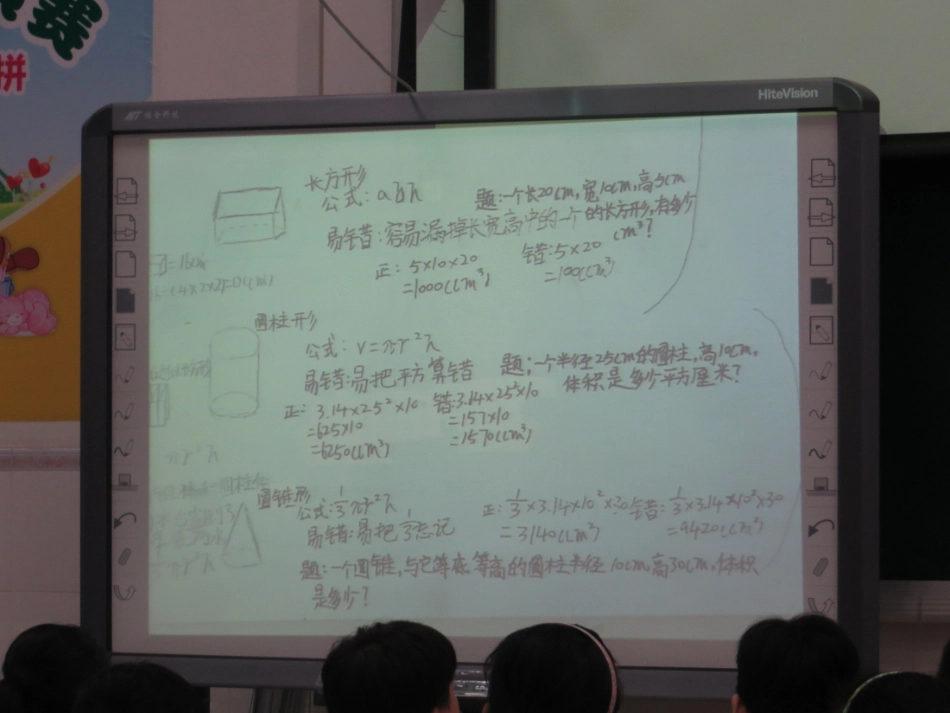 赛
拼
HiteVision
长方形
公式：abh
题：一个长20cm，宽10cm，高5cm
的长方形，有多少
cm³？
易错：容易漏掉长宽高中的一个
正：5×10×20
=1000(cm³)
错：5×20
=100(cm³)
圆柱形
公式：V=πr²h
易错：易把平方算错
题：一个半径25cm的圆柱，高10cm，
体积是多少平方厘米？
正：3.14×25²×10
=625×10
=6250(cm³)
错：3.14×25²×10
=157×10
=1570(cm³)
πr²h
圆锥形
公式：1/3πr²h
易错：易把1/3忘记
正：1/3×3.14×10²×30
=3140(cm³)
错：1/3×3.14×10²×30
=9420(cm³)
题：一个圆锥，与它等底等高的圆柱半径10cm，高30cm，体积
是多少？